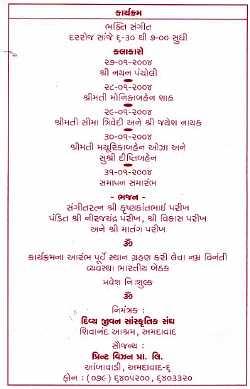 કાર્યક્રમ
ભક્તિ સંગીત
દરરોજ સાંજે ૬-૩૦ થી ૭-૦૦ સુધી
કલાકારો
૨૭-૦૧-૨૦૦૪
શ્રી નયન પંચોલી
૨૮-૦૧-૨૦૦૪
શ્રીમતી મોનિકાબહેન શાહ
૨૯-૦૧-૨૦૦૪
શ્રીમતી સીમા ત્રિવેદી અને શ્રી જયેશ નાયક
૩૦-૦૧-૨૦૦૪
શ્રીમતી મયૂરિકાબહેન ઓઝા અને
સુશ્રી દીપ્તિબહેન
૩૧-૦૧-૨૦૦૪
સમાપન સમારંભ
- ભજન -
સંગીતરત્ન શ્રી કૃષ્ણકાંતભાઈ પરીખ
પંડિત શ્રી નીરજચંદ્ર પરીખ, શ્રી વિકાસ પરીખ
અને શ્રી માતંગ પરીખ
ૐ
કાર્યક્રમના આરંભ પૂર્વે સ્થાન ગ્રહણ કરી લેવા નમ્ર વિનંતી
વ્યવસ્થા ભારતીય બેઠક
પ્રવેશ નિઃશુલ્ક
ૐ
નિમંત્રક :
દિવ્ય જીવન સાંસ્કૃતિક સંઘ
શિવાનંદ આશ્રમ, અમદાવાદ
સૌજન્ય :
પ્રિન્ટ વિઝન પ્રા. લિ.
આંબાવાડી, અમદાવાદ-૬
ફોન : (૦૭૯) ૬૪૦૫૨૦૦, ૬૪૦૩૩૨૦